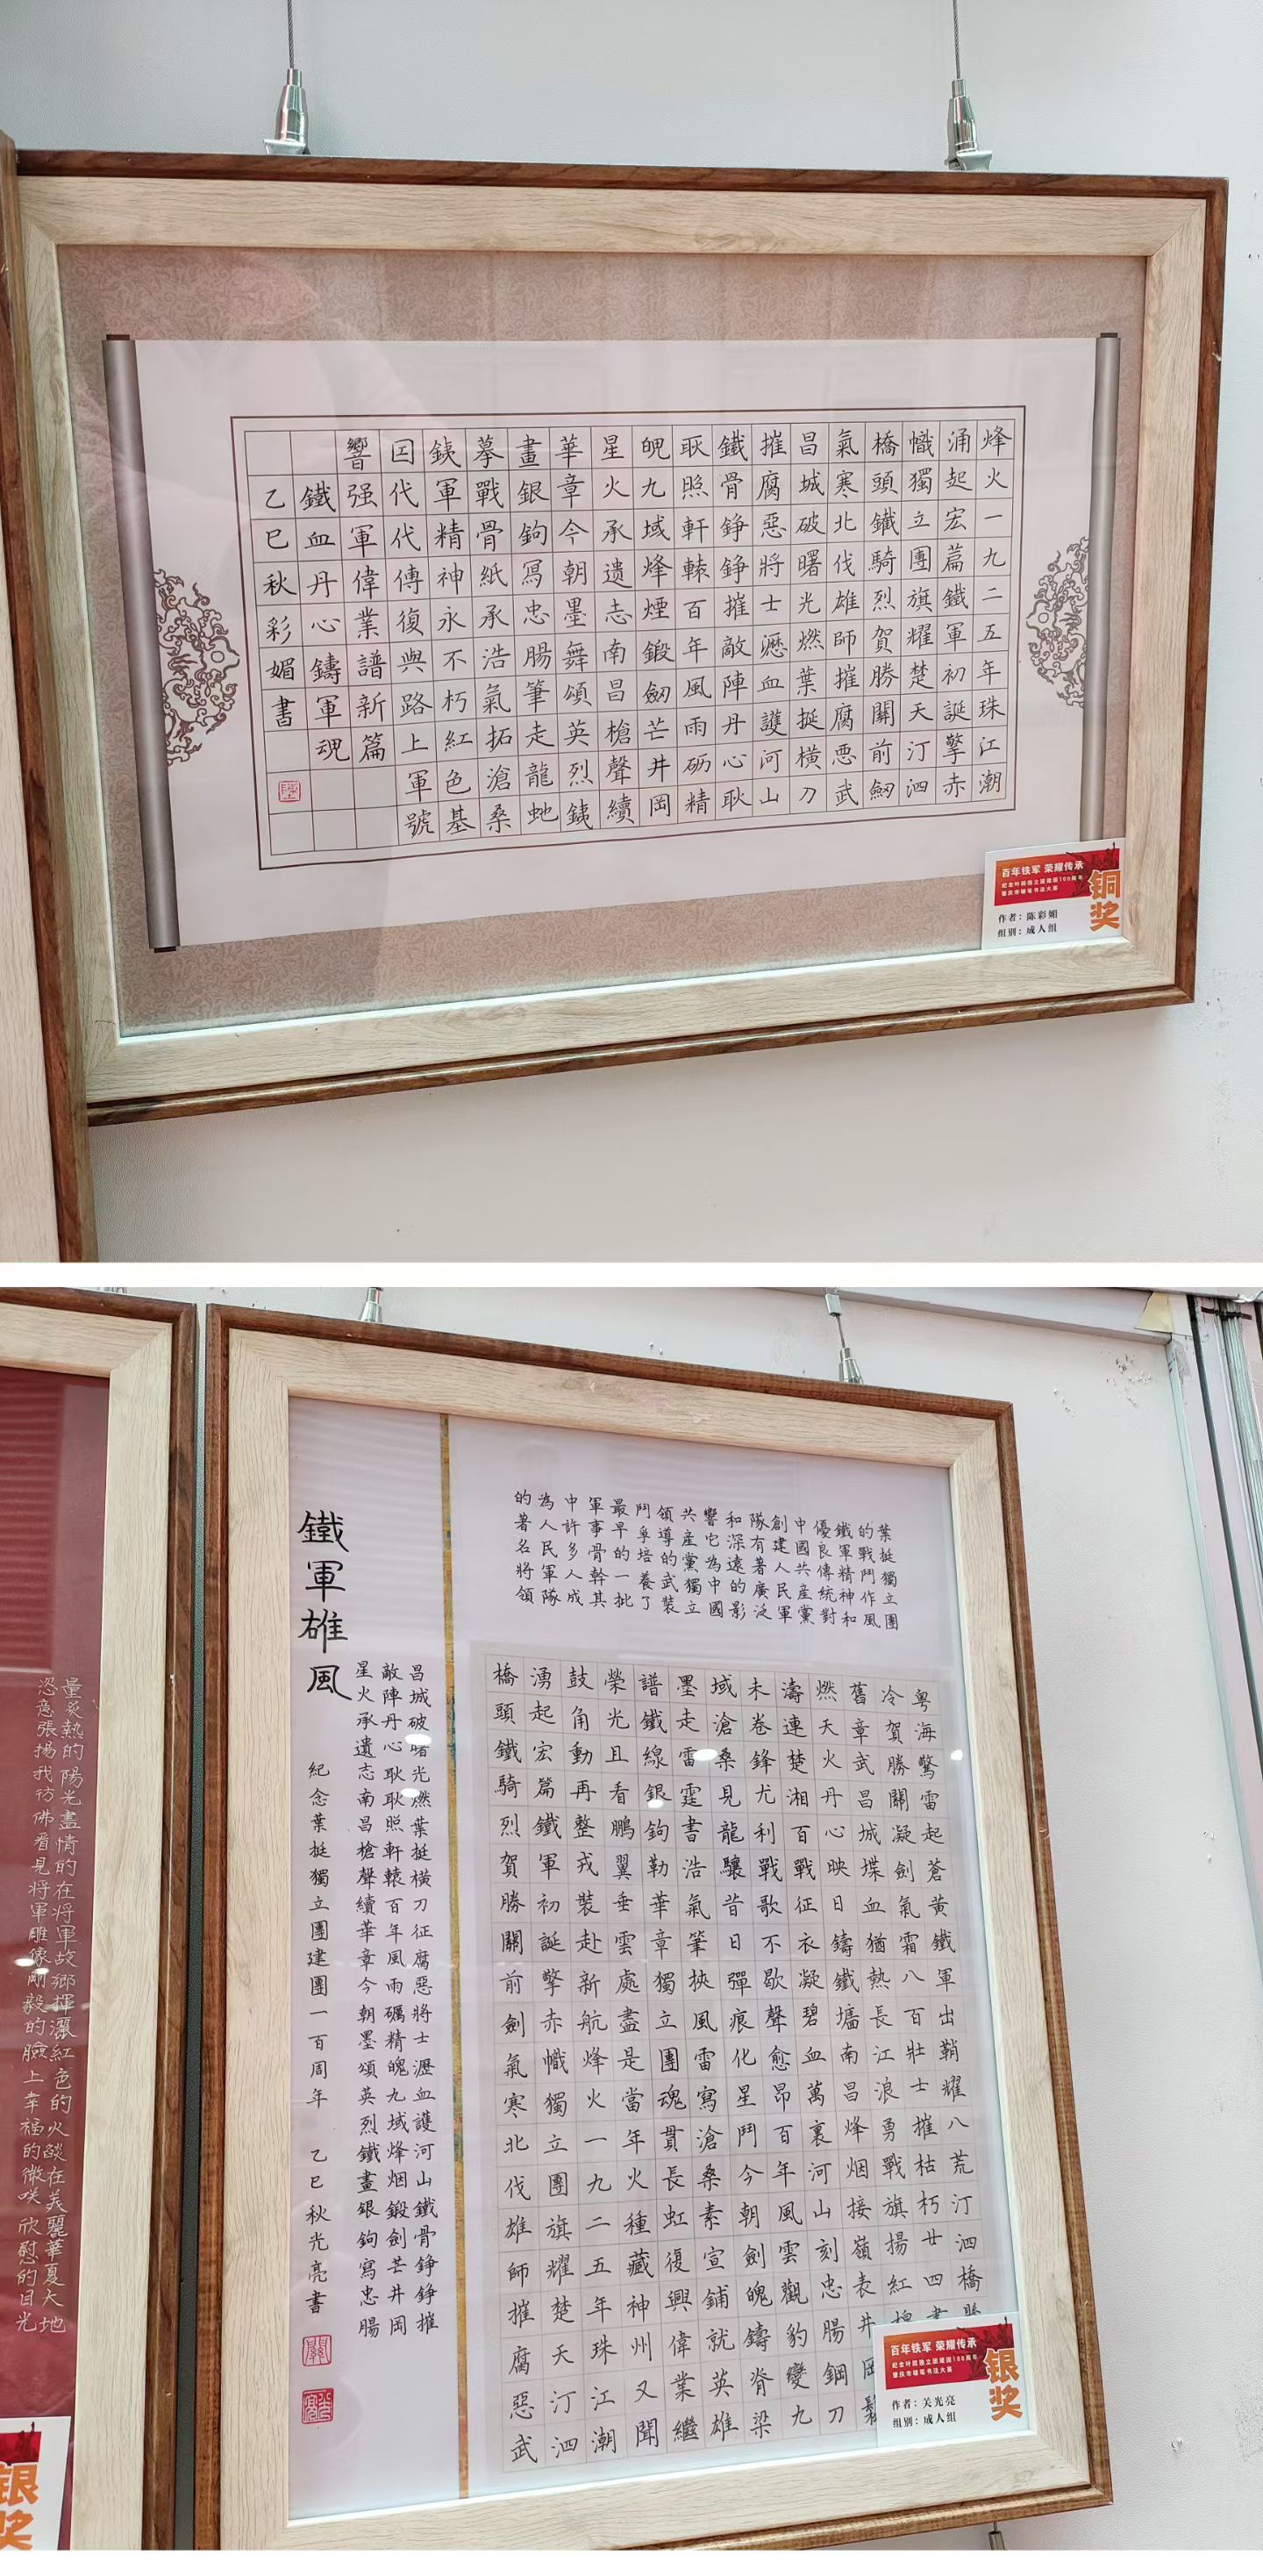 烽火一九二五年珠江潮
涌起宏篇鐵軍初誕擎赤
幟獨立團旗耀楚天汀泗
橋頭鐵騎烈賀勝關前劒
氣寒北伐雄師摧腐悪武
昌城破曙光燃葉挺横刀
摧腐惡將士瀝血護河山
鐵骨錚錚摧敵陣丹心耿
耿照軒轅百年風雨砺精
魄九域烽煙鍛劒芒井岡
星火承遗志南昌槍聲續
華章今朝墨舞頌英烈銕
畫銀鉤寫忠腸筆走龍虵
摹戰骨紙承浩氣拓滄桑
銕軍精神永不朽紅色基
囙代代傳復興路上軍號
響强軍偉業譜新篇
鐵血丹心鑄軍魂
乙巳秋彩媚書
百年铁军 荣耀传承
纪念叶挺独立团建团100周年
肇庆市硬笔书法大赛
铜奖
作者：陈彩媚
组别：成人组
葉挺獨立團
的戰鬥作風
鐵軍精神和
優良傳統對
中國共産黨
創建人民軍
隊有著廣泛
和深遠的影
響它為中國
共産黨獨立
領導的武裝
鬥爭培養了
最早的一批
軍事骨幹其
中許多人成
為人民軍隊
的著名將領
粤海驚雷起蒼黄鐵軍出鞘耀八荒汀泗橋
冷賀勝關凝劍氣霜八百壯士摧枯朽廿四
舊章武昌城堞血猶熱長江浪勇戰旗揚紅
燃天火丹心映日鑄鐵墻南昌烽烟接嶺表井
濤連楚湘百戰征衣凝碧血萬裏河山刻忠腸鋼刀
未卷鋒尤利戰歌不歇聲愈昂百年風雲觀豹變九
域滄桑見龍驤昔日彈痕化星鬥今朝劍魄鑄脊梁
墨走雷霆書浩氣筆挾風雷寫滄桑素宣鋪就英雄
譜鐵線銀鉤勒華章獨立團魂貫長虹復興偉業繼
榮光且看鵬翼垂雲處盡是當年火種藏神州又聞
鼓角動再整戎裝赴新航烽火一九二五年珠江潮
湧起宏篇鐵軍初誕擎赤幟獨立團旗耀楚天汀泗
橋頭鐵騎烈賀勝關前劍氣寒北伐雄師摧腐惡武
昌城破曙光燃葉挺横刀征腐惡將士瀝血護河山鐵骨錚錚摧
敵陣丹心耿耿照軒轅百年風雨礪精魄九域烽烟鍛劍芒井岡
星火承遺志南昌槍聲續華章今朝墨頌英烈鐵畫銀鉤寫忠腸
鐵軍雄風
紀念葉挺獨立團建團一百周年 乙巳秋光亮書
百年铁军 荣耀传承
纪念叶挺独立团建团100周年
肇庆市硬笔书法大赛
银奖
作者：关光亮
组别：成人组
量炙熱的陽光盡情的在将軍故鄉揮灑紅色的火燄在美麗華夏大地
恣意張揚我彷佛看見将軍雕像剛毅的臉上幸福的微咲欣慰的目光
银奖